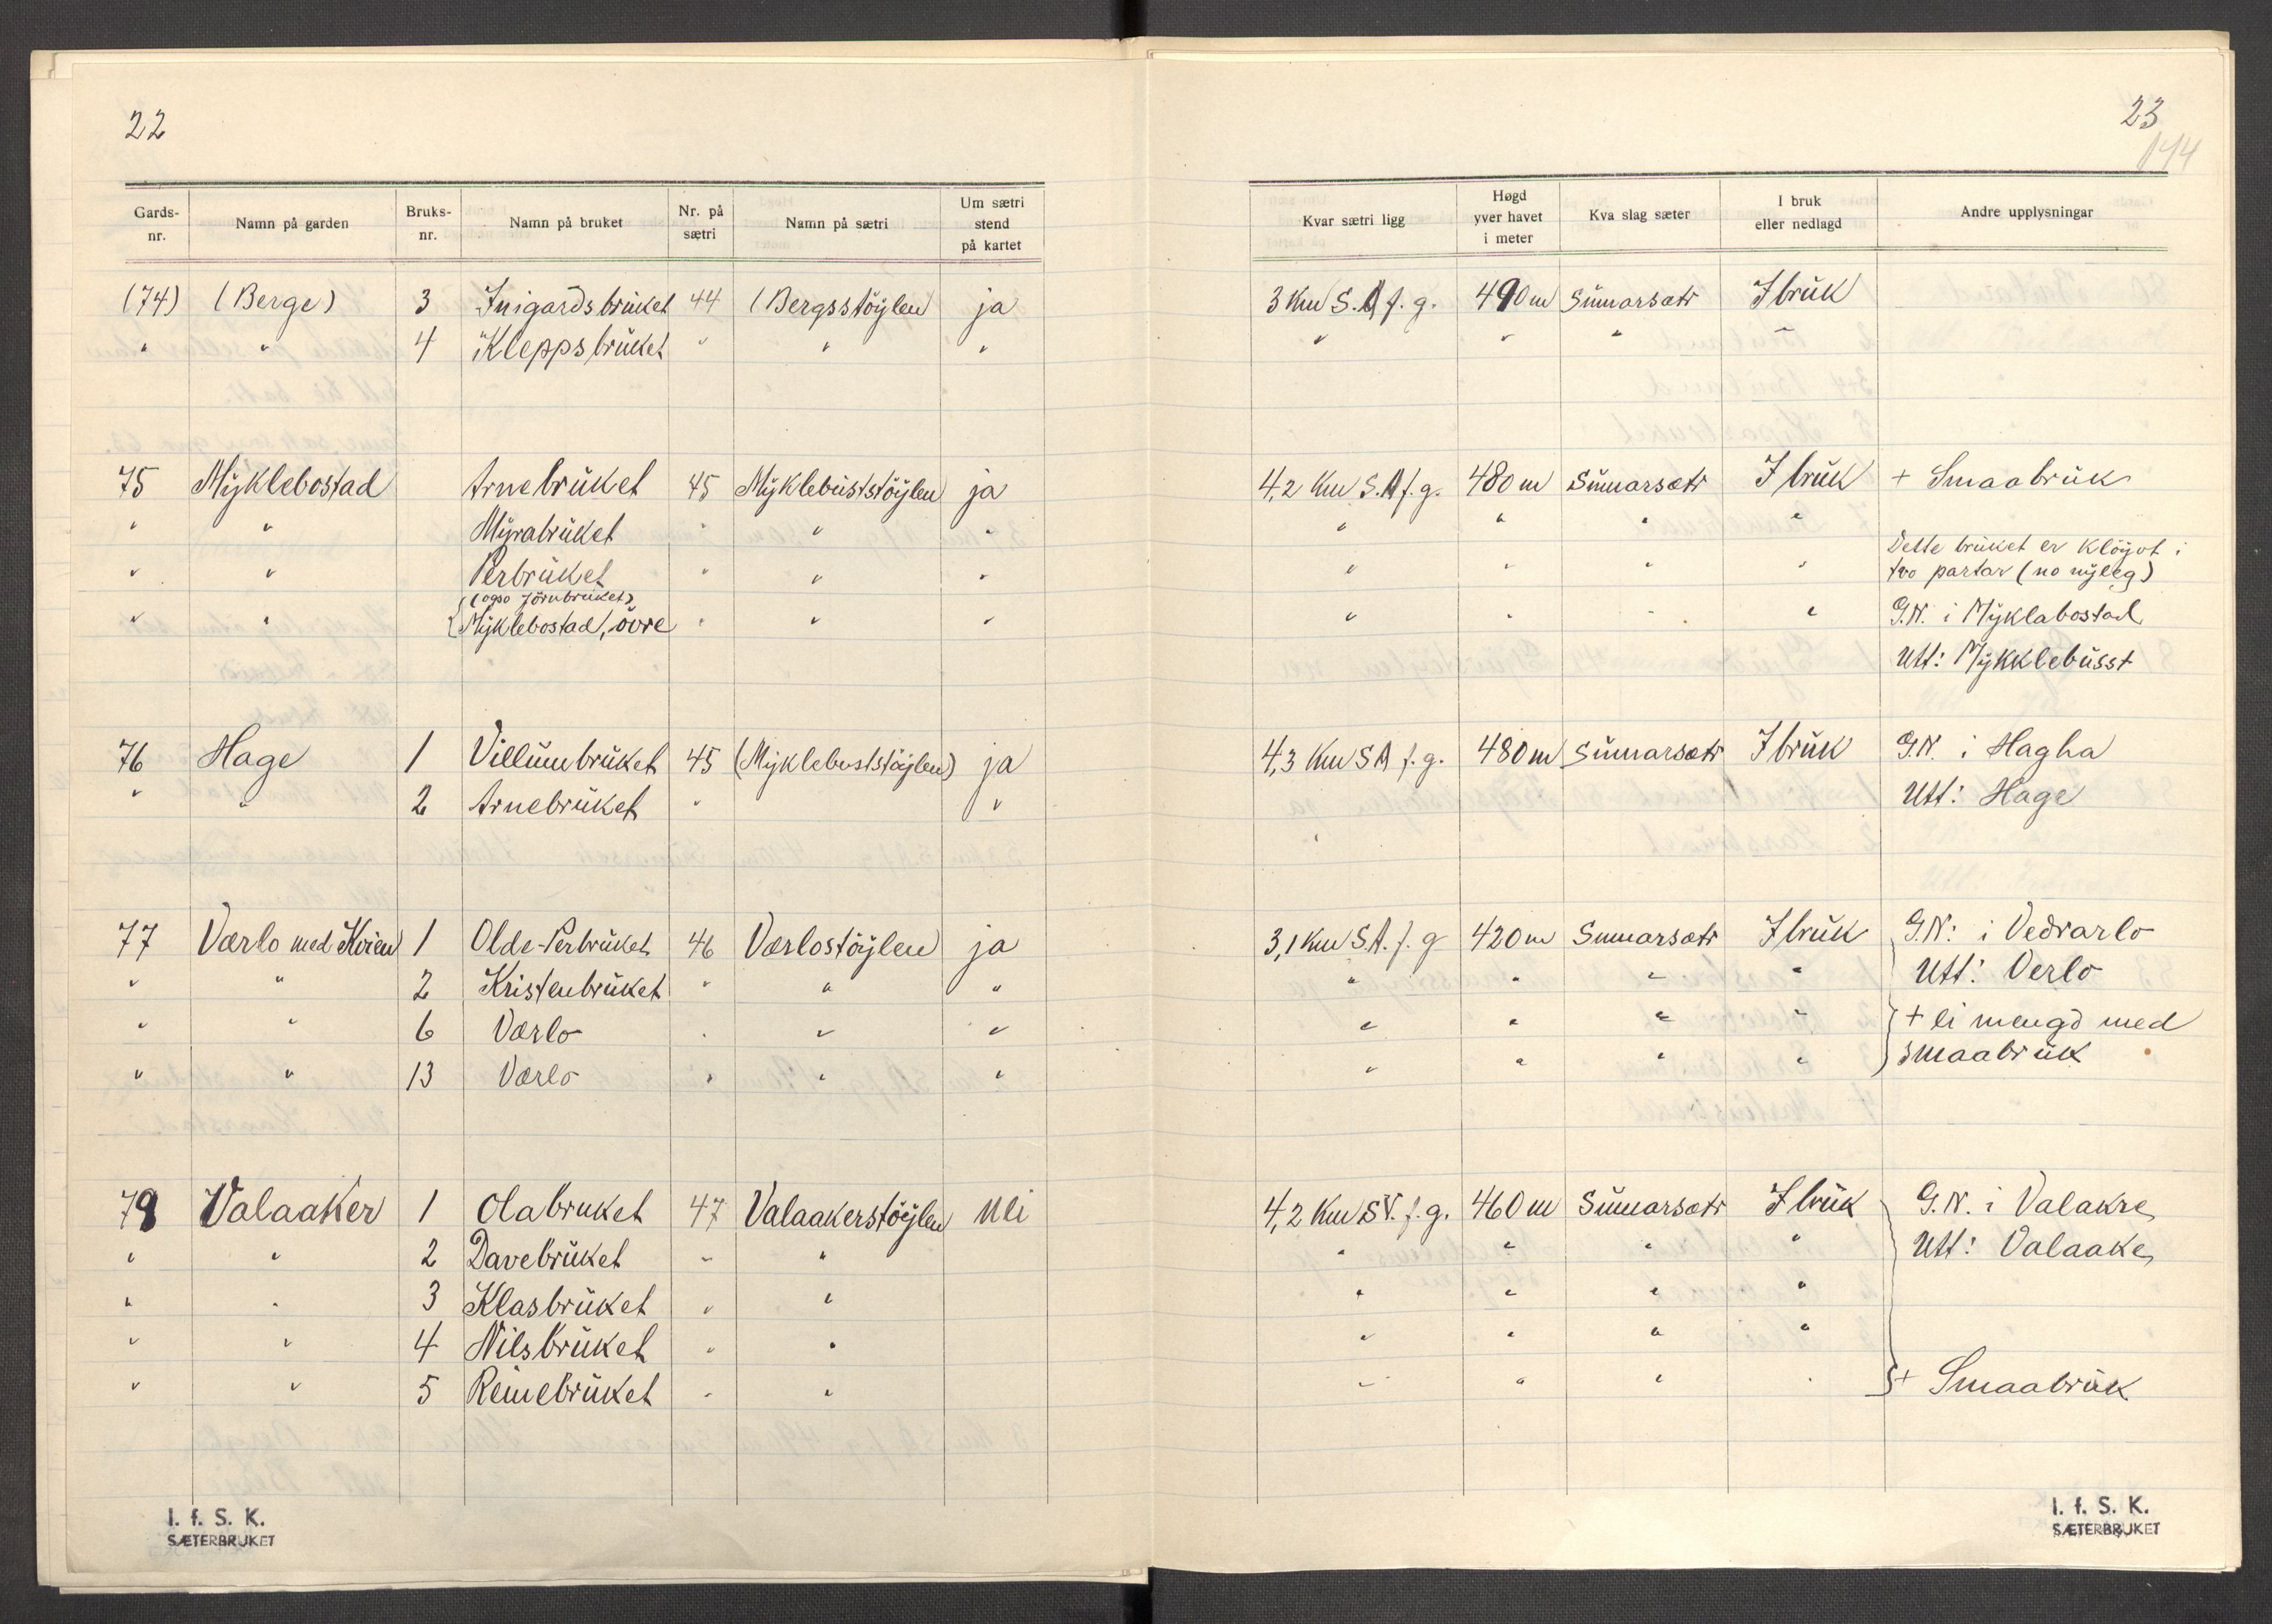 22
Gards-nr. Namn på garden Bruks-nr. Namn på bruket Nr. på sætri Namn på sætri Um sætri stend på kartet
(74) (Berge) 3 Inigardsbruket 44 (Bergsstöylen) ja
" " 4 Kleppsbruket " " "
75 Myklebostad Arnebruket 45 Myklebuststöylen ja
" " Myrabruket " " "
" " Perbruket " " "
(ogso Jörnbruket)
" " Myklebostad, övre " " "
76 Hage 1 Villumbruket 45 (Myklebuststöylen) ja
" " 2 Arnebruket " "
77 Værlo med Kvien 1 Olde-Perbruket 46 Værlostöylen ja
" " 2 Kristenbruket " " "
" " 6 Værlo " " "
" " 13 Værlo " " "
78 Valaaker 1 Olabruket 47 Valaakerstöylen Nei
" " 2 Davebruket " "
" " 3 Klasbruket " "
" " 4 Nilsbruket " "
" " 5 Reinebruket " "
I. f. S. K.
SÆTERBRUKET
23
144
Kvar sætri ligg Høgd yver havet i meter Kva slag sæter I bruk eller nedlagd Andre upplysningar
3 km S.A f. g. 490 m Sumarsætr I bruk
" " " "
4,2 km S.A f. g. 480 m Sumarsætr I bruk + Smaabruk
" " " "
Dette bruket er klöyvt i
" " " " tvo partar (no nyleg)
" " " " G.N. i Myklabostad
Utt: Mykklebusst
4,3 km SA f. g. 480 m Sumarsætr I bruk G.N. i Hagha
Utt: Hage
3,1 km S.A. f. g 420 m Sumarsætr I bruk G.N: i Vedrarlo
" " " " Utt: Verlo
" " " " + ei mengd med
" " " " smaabruk
4,2 km SV. f. g. 460 m Sumarsætr I bruk G.N. i Valakre
" " " " Utt: Valaake
" " " "
" " " "
" " " " + Smaabruk
I. f. S. K.
SÆTERBRUKET